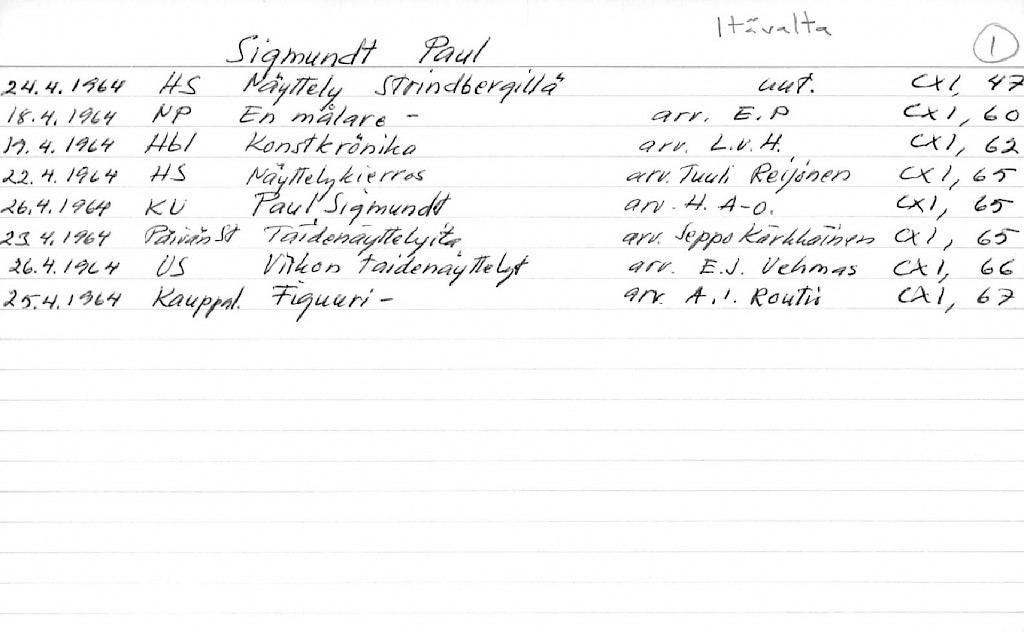 Itävalta
Sigmundt Paul 1
24.4.1964 HS Näyttely Strindbergillä uut. CXI, 47
18.4.1964 NP En målare - arv. E.P CXI, 60
19.4.1964 Hbl Konstkrönika arv. L.v.H. CXI, 62
22.4.1964 HS Näyttelykierros arv. Tuuli Reijonen CXI, 65
26.4.1964 KU Paul Sigmundt arv. H. A-o. CXI, 65
23.4.1964 Päivän St Taidenäyttelyitä arv. Seppo Kärkkäinen CXI, 65
26.4.1964 US Viikon taidenäyttelyt arv. E.J. Vehmas CXI, 66
25.4.1964 Kauppal. Figuuri - arv. A.I. Routio CXI, 67